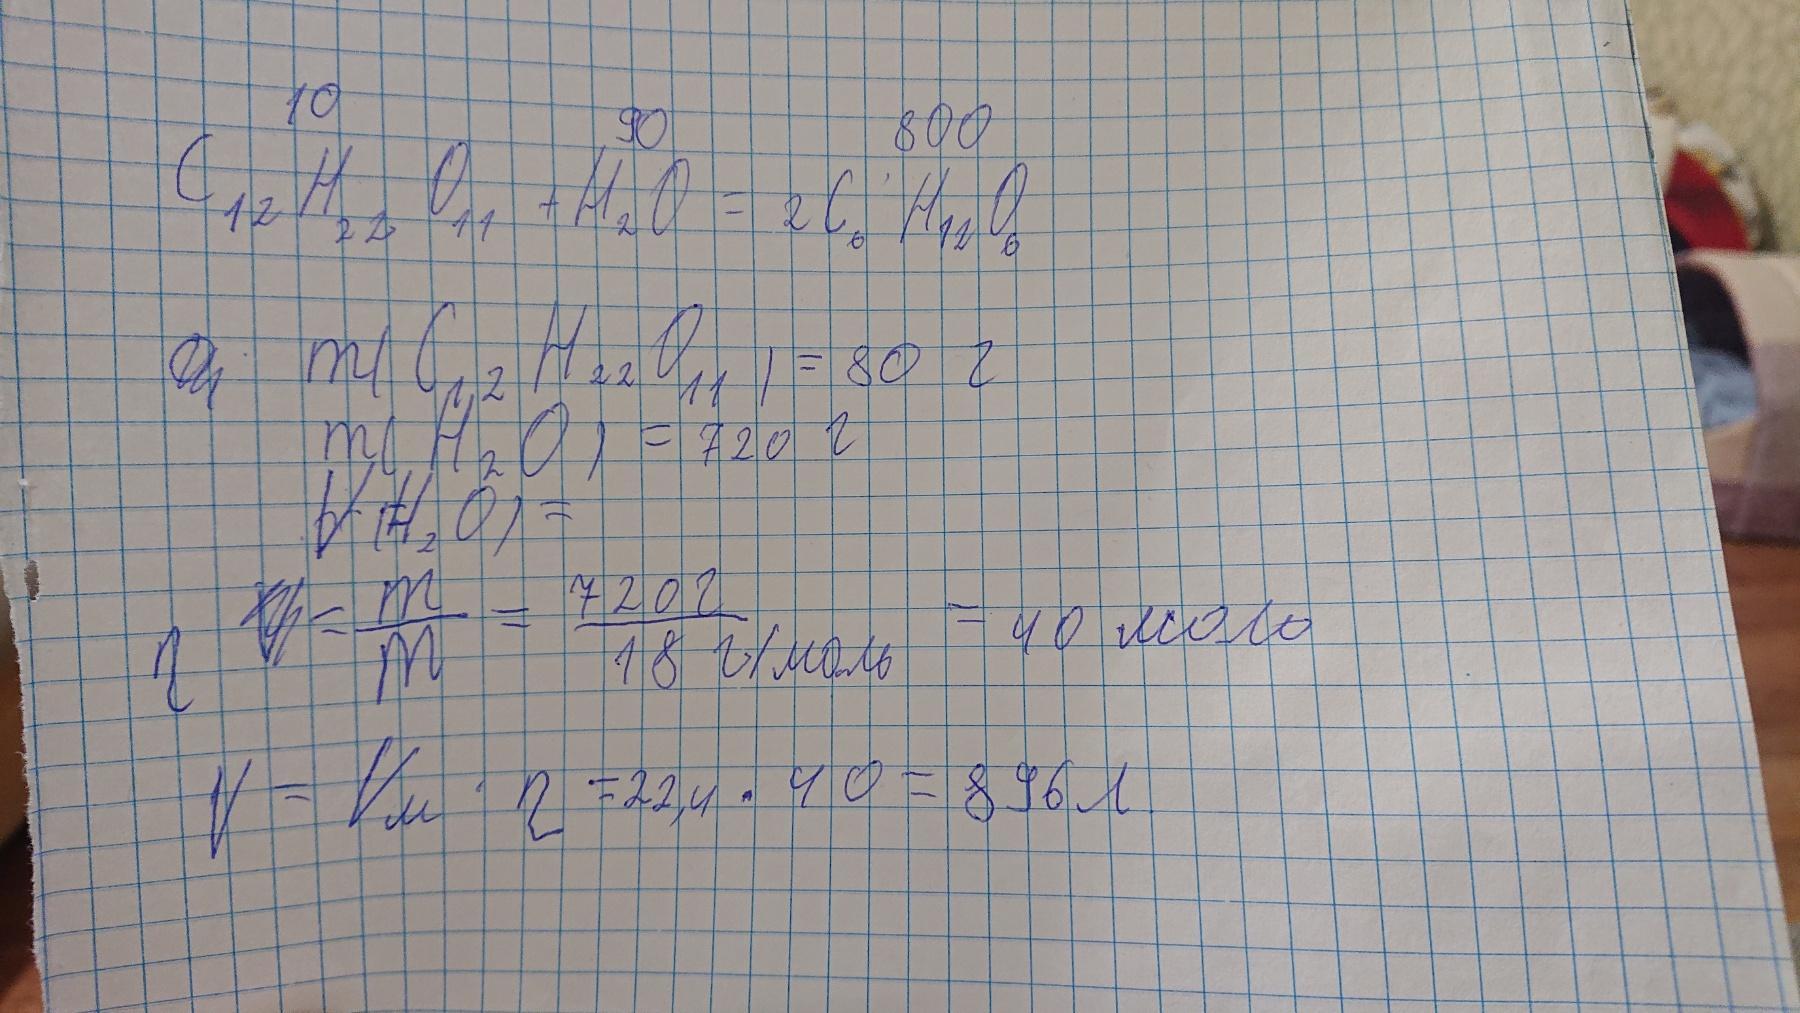 10 90 800
C₁₂H₂₂O₁₁ + H₂O = 2C₆H₁₂O₆
m(C₁₂H₂₂O₁₁) = 80 г
m(H₂O) = 720 г
V(H₂O) =
η = m/m = 720г/18 г/моль = 40 моль
V = Vм · η = 22,4 · 40 = 896 л